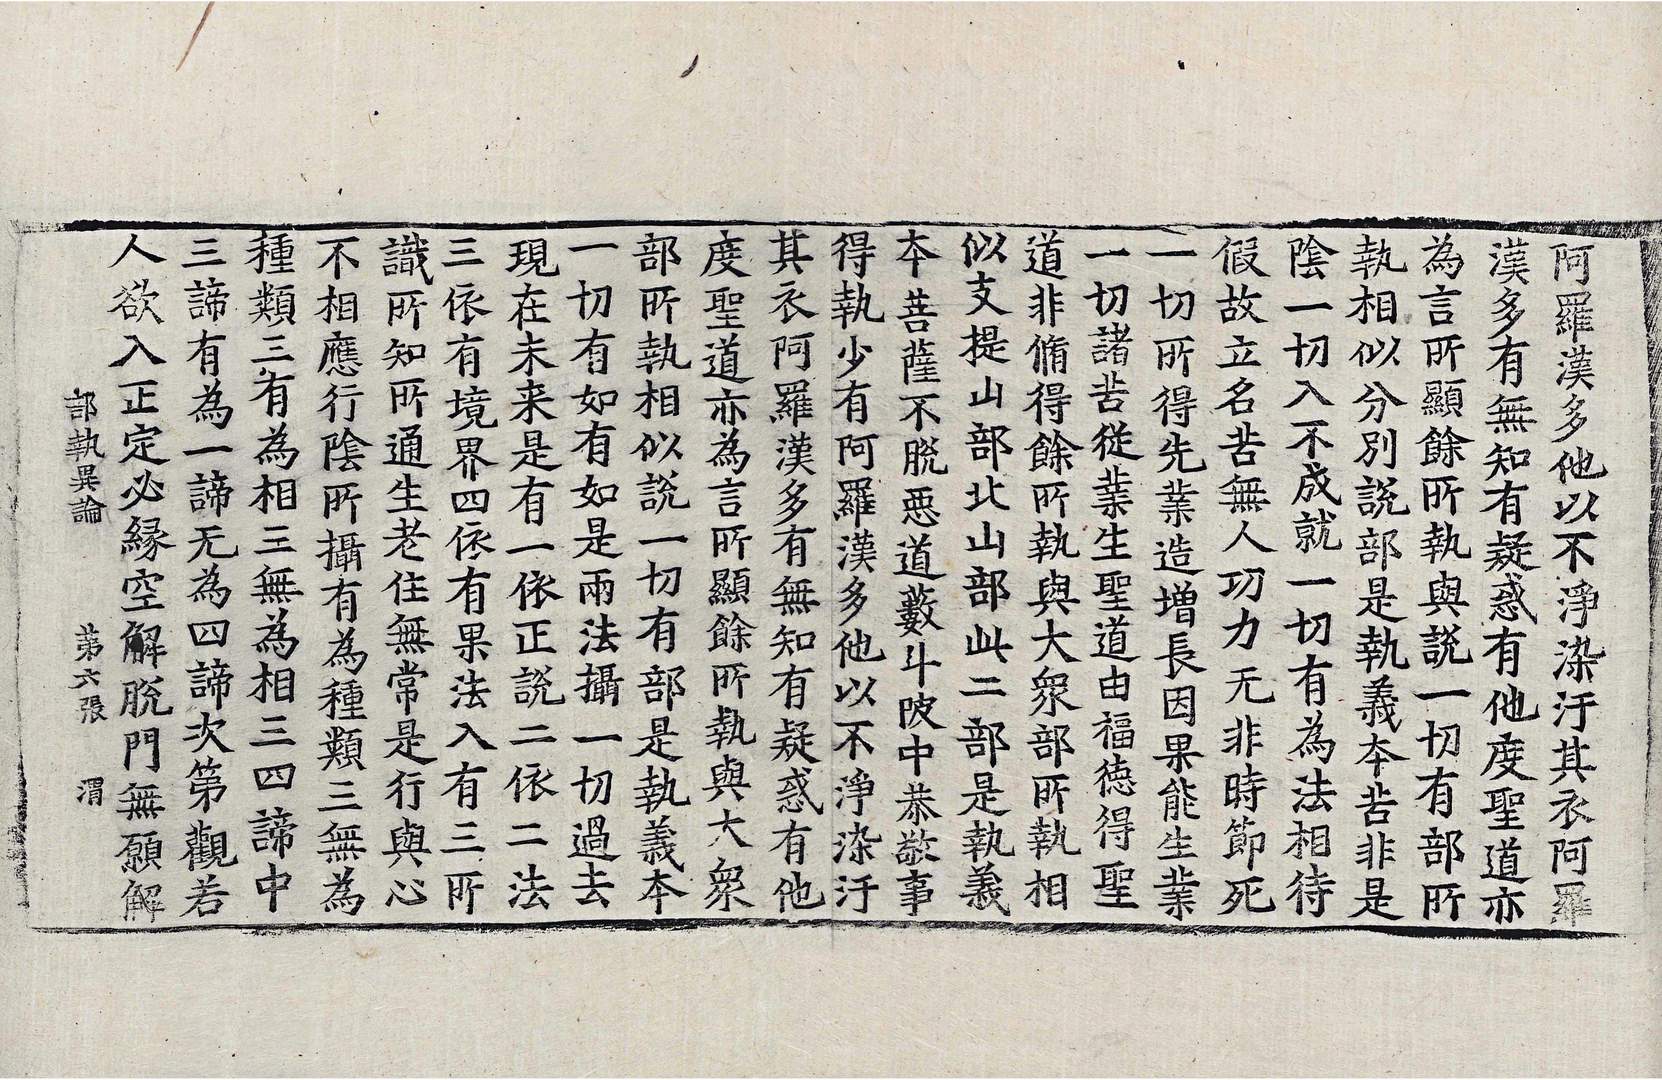 阿羅漢多他以不淨染汙其衣阿羅
漢多有無知有疑惑有他度聖道亦
為言所顯餘所執與說一切有部所
執相似分別說部是執義本苦非是
陰一切入不成就一切有為法相待
假故立名苦無人功力无非時節死
一切所得先業造增長因果能生業
一切諸苦從業生聖道由福德得聖
道非脩得餘所執與大衆部所執相
似支提山部北山部此二部是執義
本菩薩不脫惡道藪斗陂中恭敬事
得執少有阿羅漢多他以不淨染汙
其衣阿羅漢多有無知有疑惑有他
度聖道亦為言所顯餘所執與大衆
部所執相似說一切有部是執義本
一切有如有如是兩法攝一切過去
現在未来是有一依正說二依二法
三依有境界四依有果法入有三所
識所知所通生老住無常是行與心
不相應行陰所攝有為種類三無為
種類三有為相三無為相三四諦中
三諦有為一諦无為四諦次第觀若
人欲入正定必緣空解脫門無願解
部執異論　第六張　渭